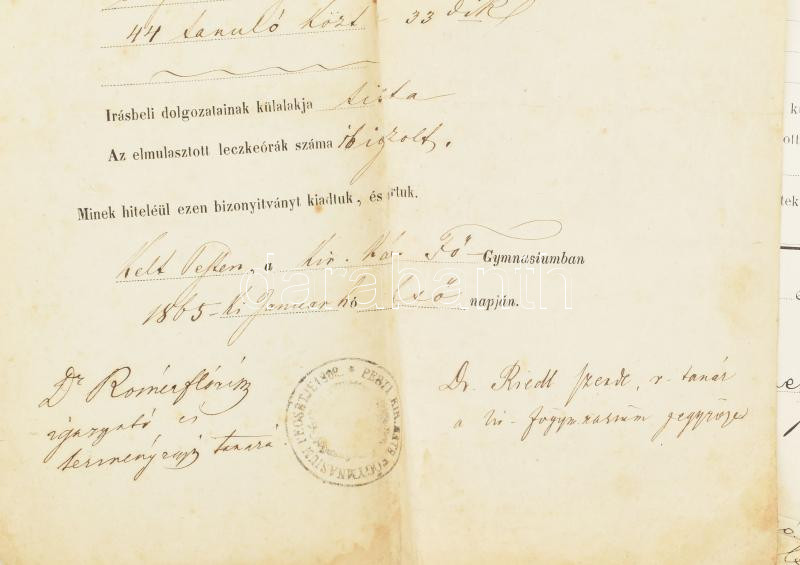 44 tanuló közt - 33 dik
Irásbeli dolgozatainak külalakja tiszta
Az elmulasztott leczkeórák száma 16 igazolt.
Minek hiteléül ezen bizonyitványt kiadtuk, és irtuk.
Kelt Pesten, a Kir. Kat. Fő Gymnasiumban
1865-ki Januar hó első napján.
Dr Rómer Flóris
igazgató és
természetrajz tanára.
Dr. Riedl Szende, r. tanár
a kir. főgymnasium jegyzője
darabanth